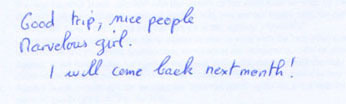 Good trip, nice people
Marvelous girl.
I will come back next month!